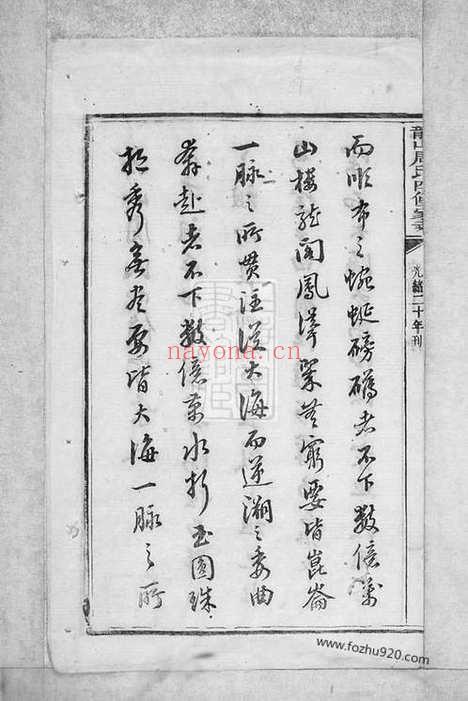 龍山周氏四修家乘
光緒二十年刊
而順布之蜿蜒磅礴者不下數億萬
山樓龍閣鳳澤聚無窮要皆崑崙
一脉之所貫注從大海而逆溯之委曲
奔赴者不下數億萬水折玉圓珠
於秀無尽要皆大海一脉之所
nayona.cn
www.fozhu920.com